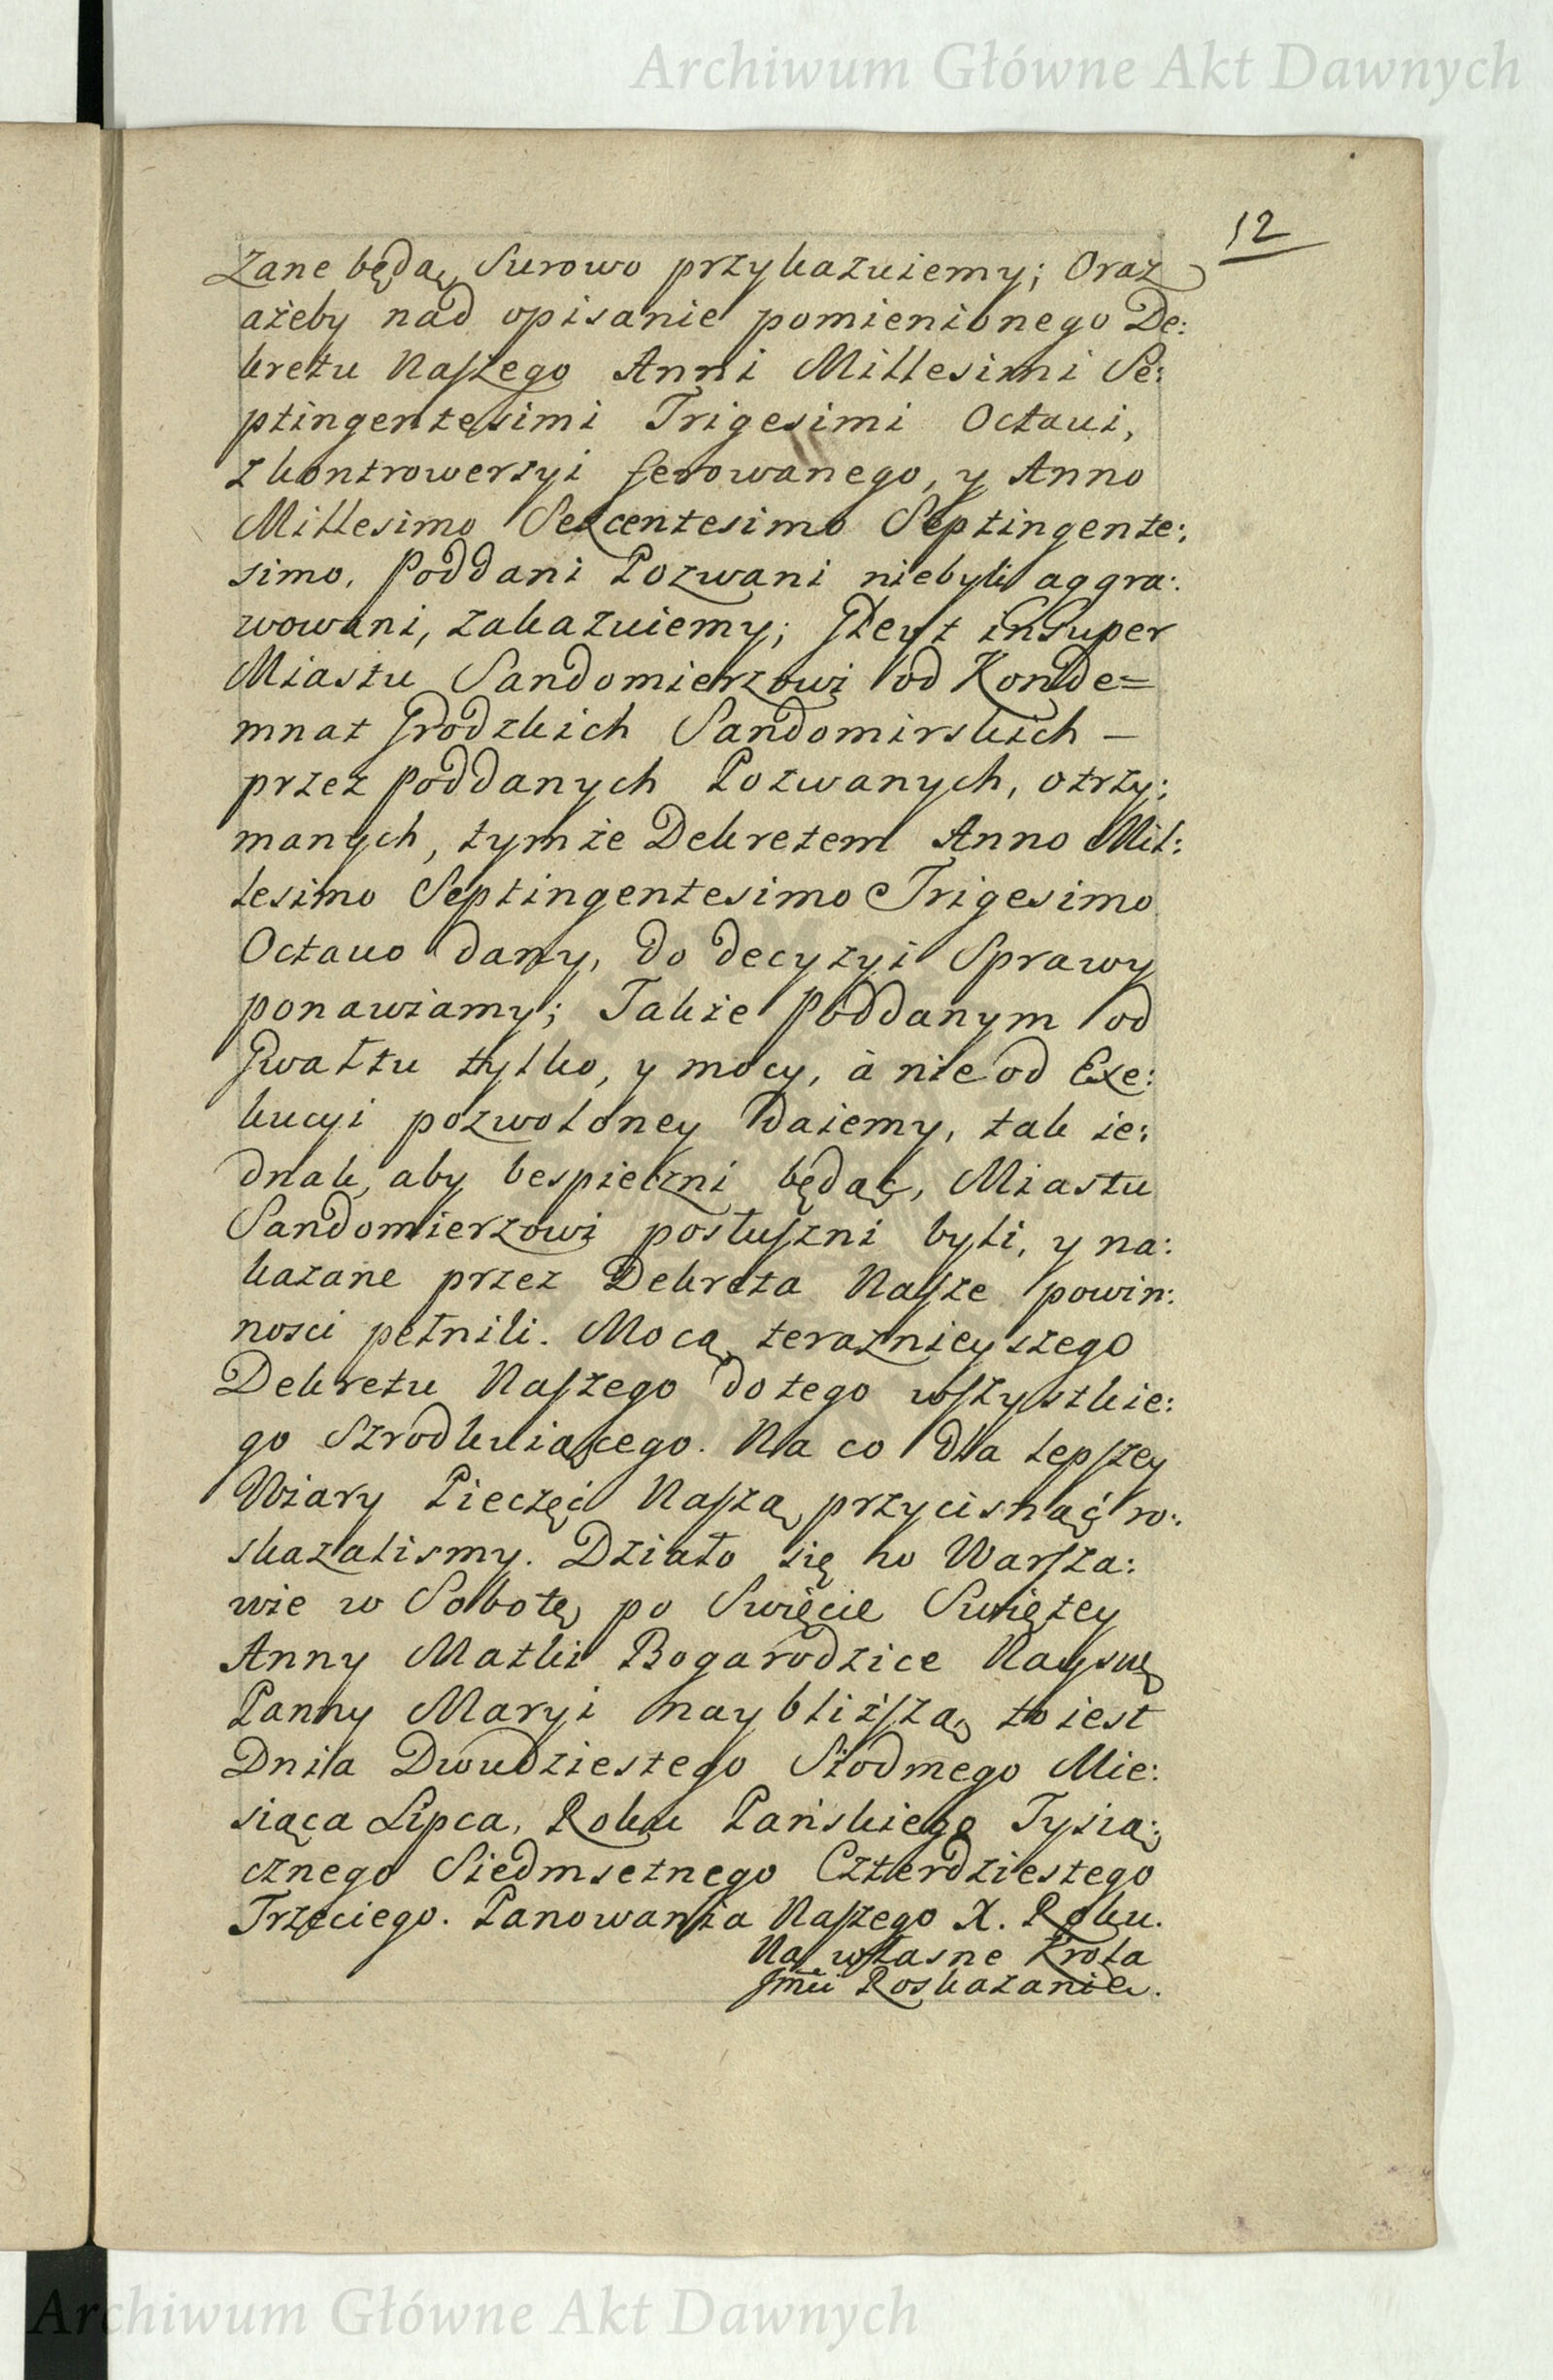 Archiwum Główne Akt Dawnych
12
zane będą, Surowo przykazuiemy; Oraz
ażeby nad opisanie pomienionego De:
kretu Naszego Anni Millesimi Se:
ptingentesimi Trigesimi Octaui,
z kontrowersyi ferowanego, y Anno
Millesimo Sexcentesimo Septingente:
simo, Poddani Pozwani niebyli aggra:
wowani, zakazuiemy; Gleyt insuper
Miastu Sandomierzowi od Konde=
mnat Grodzkich Sandomirskich –
przez Poddanych Pozwanych, otrzy:
manych, tymże Dekretem Anno Mil:
lesimo Septingentesimo Trigesimo
Octauo dany, do decyzyi Sprawy
ponawiamy; Także Poddanym od
Gwałtu tylko, y mocy, à nie od Exe:
kucyi pozwoloney daiemy, tak ie:
dnak, aby bespieczni będąc, Miastu
Sandomierzowi posłuszni byli, y na:
kazane przez Dekreta Nasze powin:
nosci pełnili. Mocą teraznieyszego
Dekretu Naszego do tego wszystkie:
go Szrodkuiącego. Na co dla lepszey
Wiary Pieczęć Naszą przycisnąć ro:
skazalismy. Działo się w Warsza:
wie w Sobotę po Swięcie Swiętey
Anny Matki Bogarodzice Nayswę
Panny Maryi naybliższą, to iest
Dnia Dwudziestego Siodmego Mie:
siąca Lipca, Roku Pańskiego Tysią:
cznego Siedmsetnego Czterdziestego
Trzeciego. Panowania Naszego X. Roku.
Na własne Krola
Jmći Roskazanie.
Archiwum Główne Akt Dawnych